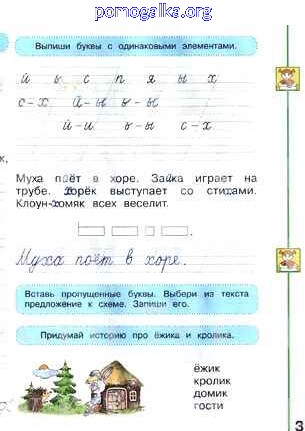 pomogalka.org
Выпиши буквы с одинаковыми элементами.
й ъ с п я ы х
с-х й-ы ъ-ы
й-и ъ-ы с-х
к,
Муха поёт в хоре. Зайка играет на
трубе. Хорёк выступает со стихами.
Клоун-хомяк всех веселит.
Муха поёт в хоре.
Вставь пропущенные буквы. Выбери из текста
предложение к схеме. Запиши его.
Придумай историю про ёжика и кролика.
ёжик
кролик
домик
гости
3